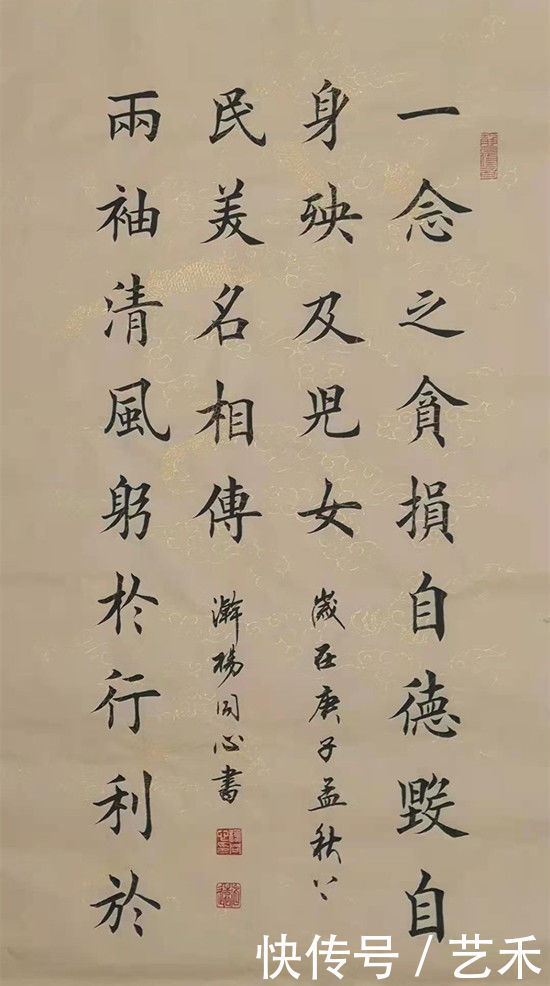 一念之貪損自德毀自
身殃及兒女
歲在庚子孟秋
兩袖清風躬扵行利於
民美名相傳
瀚楊同心書
快传号 / 艺禾